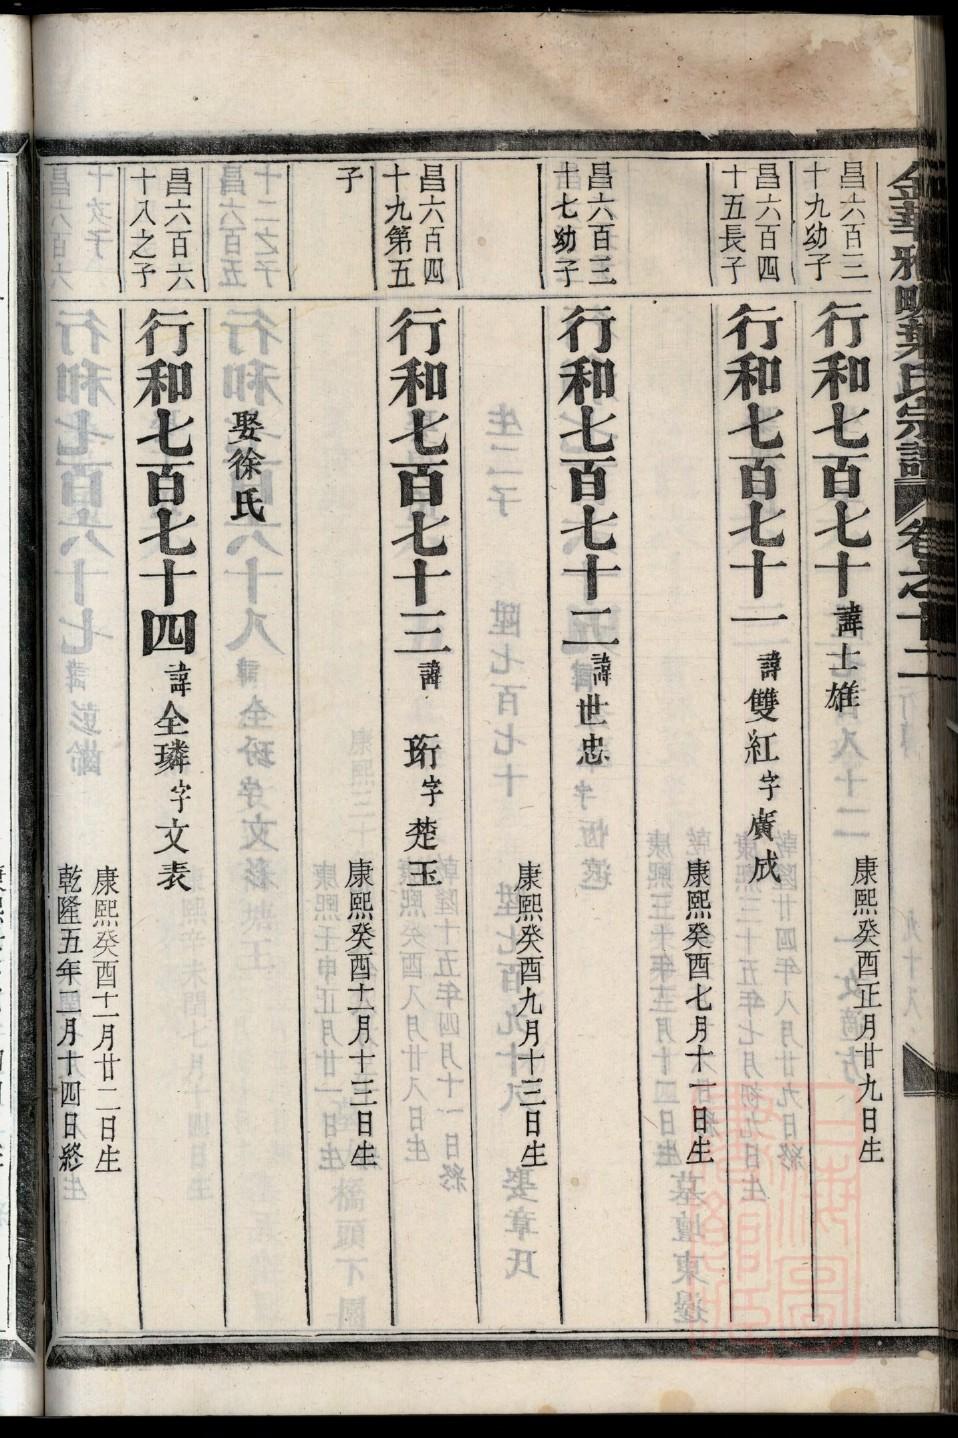 金華雅畈葉氏宗譜 卷之十二
昌六百三
十九幼子
行和七百七十諱士雄
康熙癸酉正月廿九日生
昌六百四
十五長子
行和七百七十一諱雙紅字廣成
康熙癸酉七月十一日生
昌六百三
十七幼子
行和七百七十二諱世忠
康熙癸酉九月十三日生
昌六百四
十九第五
子
行和七百七十三諱珩字楚玉
康熙癸酉十一月十三日生
娶徐氏
昌六百六
十八之子
行和七百七十四諱全璘字文表
康熙癸酉十一月廿二日生
乾隆五年二月十四日終